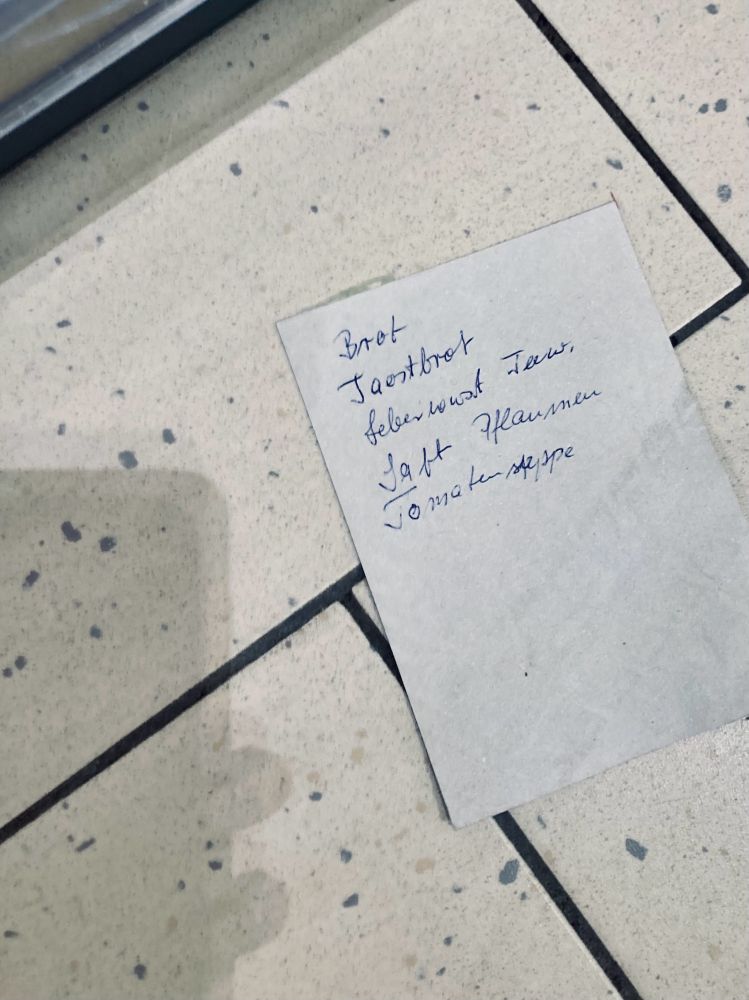 Brot
Taostbrot
Leberwurst
Saft Pflaumen
Tomatensuppe